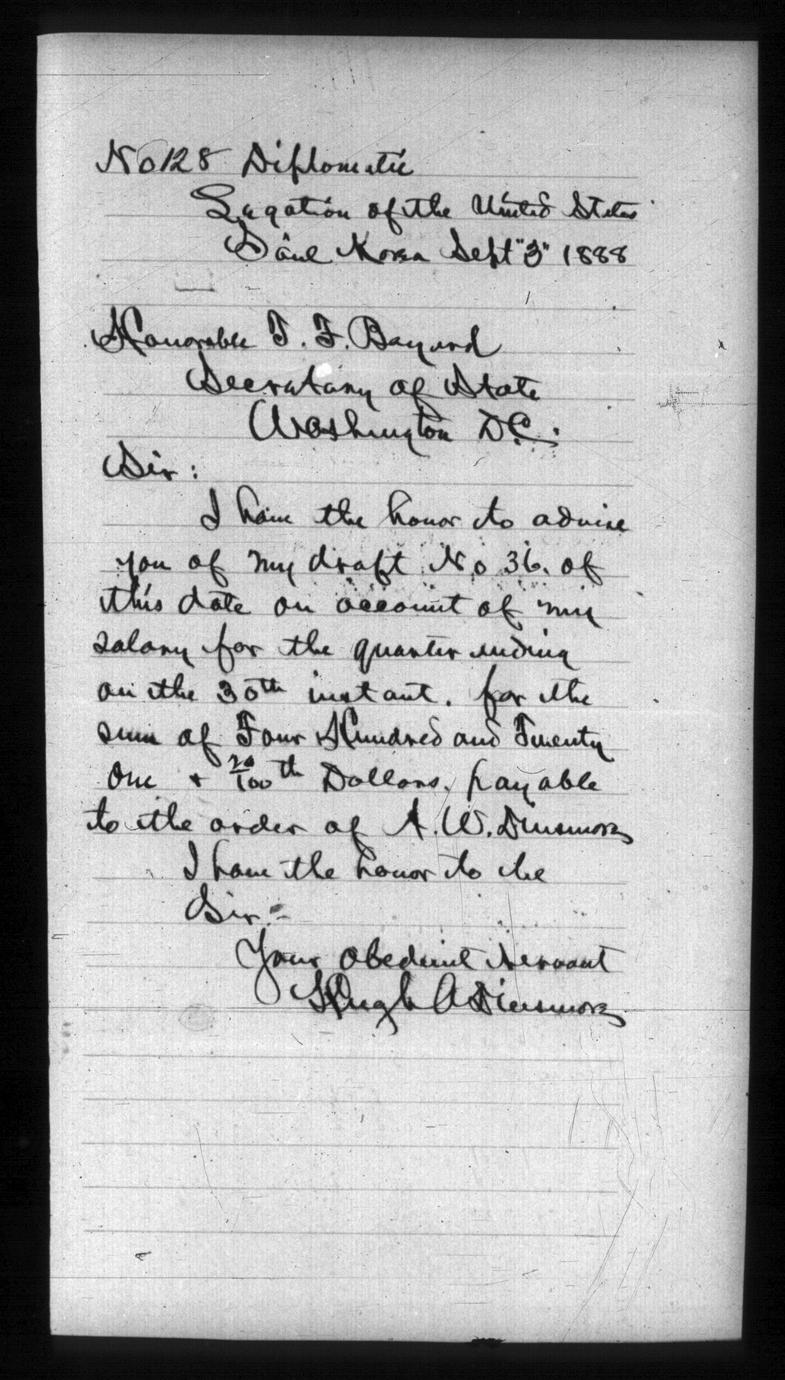 No 128 Diplomatic
Legation of the United States
Söul Korea Sept "3" 1888
Honorable T. F. Bayard
Secretary of State
Washington D.C.
Sir:
I have the honor to advise
you of my draft No 36. of
this date on account of my
salary for the quarter ending
on the 30th instant. for the
sum of Four Hundred and Twenty
One + 20/100th Dollars, payable
to the order of A. W. Dinsmore
I have the honor to be
Sir:-
Your obedient servant
Hugh A Dinsmore